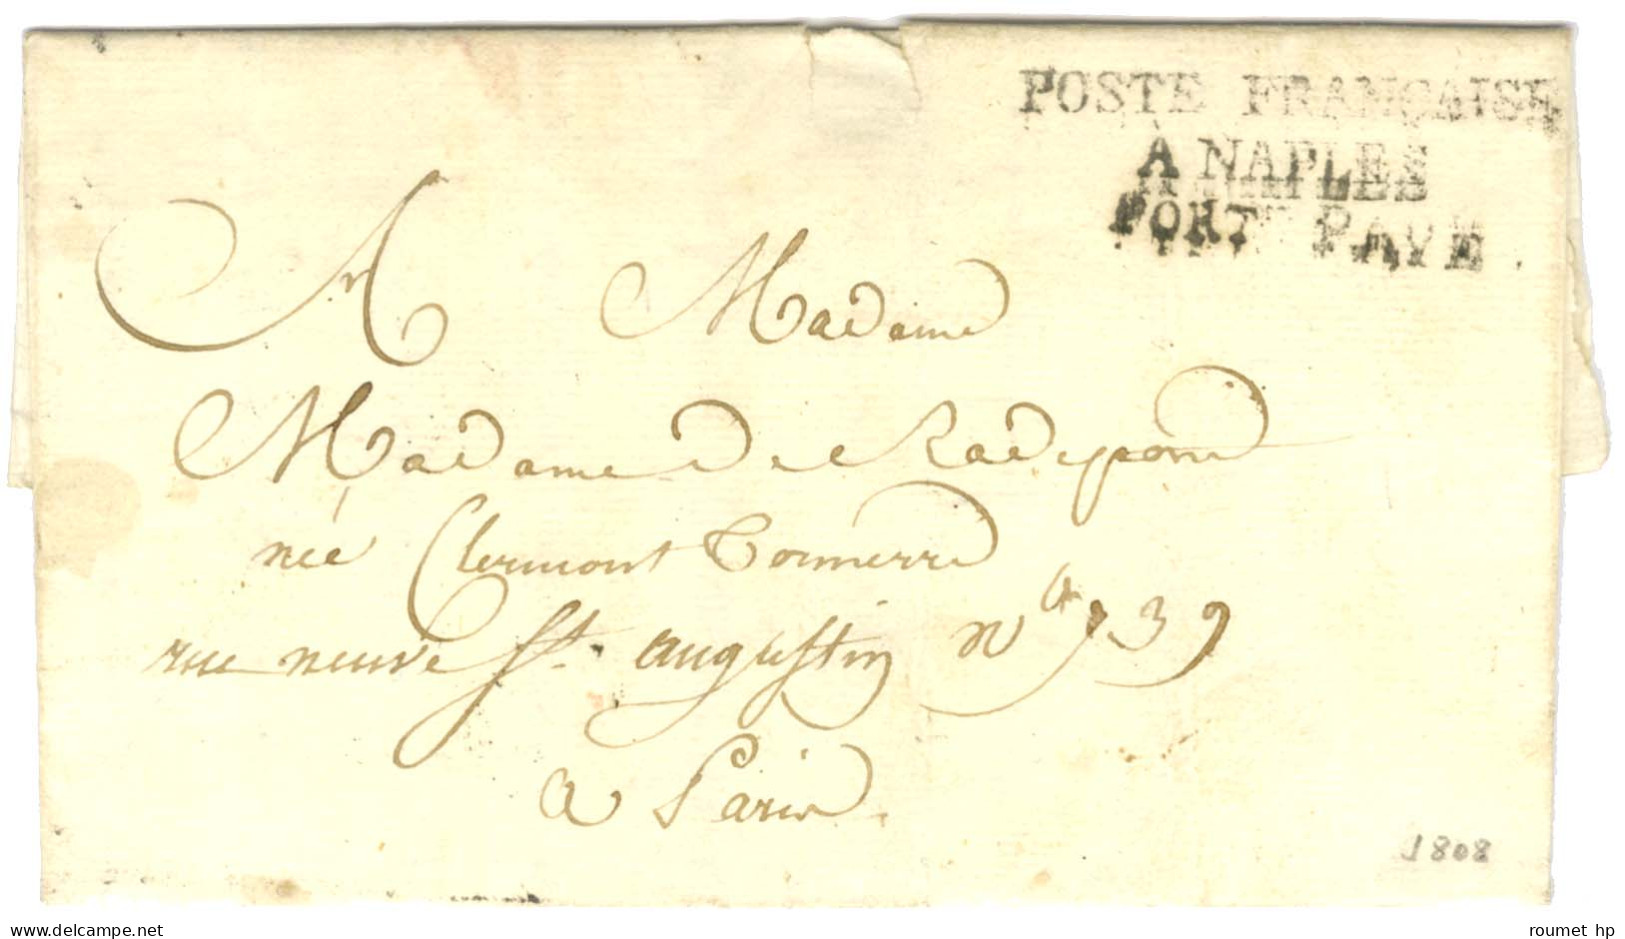 POSTE FRANÇAISE
A NAPLES
PORT PAYÉ
A Madame
Madame de Radepont
née Clermont Tonnerre
rue neuve St. augustin n° 39
a Paris
1808
www.delcampe.net
roumet hp